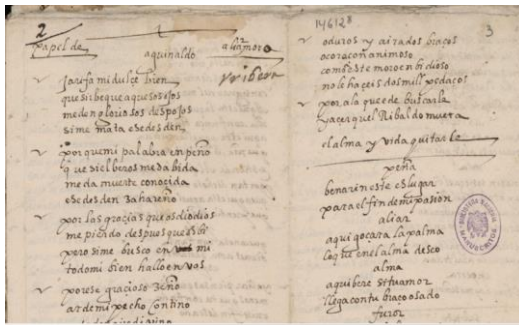 2
papel de
aguinaldo
aliamoro
Jarifa mi dulce bien
que sirbe que aquesos ojos
me den gloriosos despojos
si me mata ese desden
por que mi palabra enpeño
que si el beros me da bida
me da muerte conocida
ese desden zahareño
por las gracias que os dio dios
me pierdo despues que os bi
pero si me busco en mi
todo mi bien hallo en vos
por ese gracioso zeño
arde mi pecho contino
146128
3
o duros y airados braços
o coraçon animoso
como este moro enbidioso
no le haceis dos mill pedaços
por ala que e de buscarla
y acer quel Ribal do muera
el alma y vida quitarle
peña
benar en este es lugar
para el fin de mi pasion
aliar
aqui goçara la palma
lo que en el alma deseo
alma
aqui bere si tu amor
llega con tu braço osado
furor
BIBLIOTECA NACIONAL
MANUSCRITOS